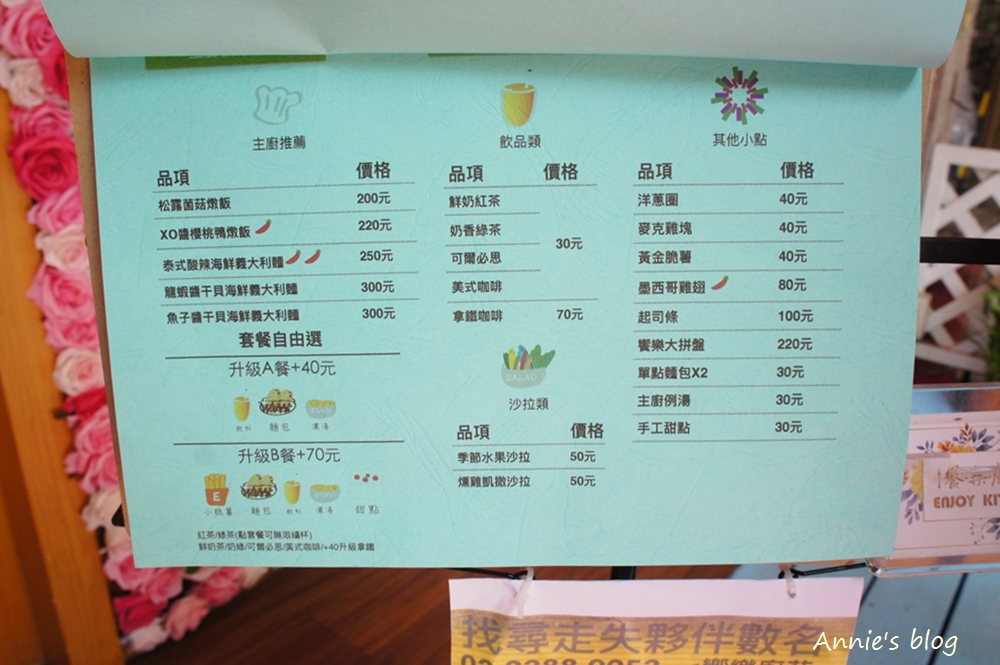 主廚推薦
品項 價格
松露菌菇燉飯 200元
XO醬櫻桃鴨燉飯 220元
泰式酸辣海鮮義大利麵 250元
龍蝦醬干貝海鮮義大利麵 300元
魚子醬干貝海鮮義大利麵 300元
套餐自由選
升級A餐+40元
飲料 麵包 濃湯
升級B餐+70元
E
小脆薯 麵包 飲料 濃湯 甜點
紅茶/綠茶(點套餐可無限續杯)
鮮奶茶/奶綠/可爾必思/美式咖啡/+40升級拿鐵
飲品類
品項 價格
鮮奶紅茶
奶香綠茶
30元
可爾必思
美式咖啡
拿鐵咖啡 70元
SALAD
沙拉類
品項 價格
季節水果沙拉 50元
燻雞凱撒沙拉 50元
其他小點
品項 價格
洋蔥圈 40元
麥克雞塊 40元
黃金脆薯 40元
墨西哥雞翅 80元
起司條 100元
饗樂大拼盤 220元
單點麵包X2 30元
主廚例湯 30元
手工甜點 30元
ENJOY KI
找尋走失夥伴數名
Annie's blog